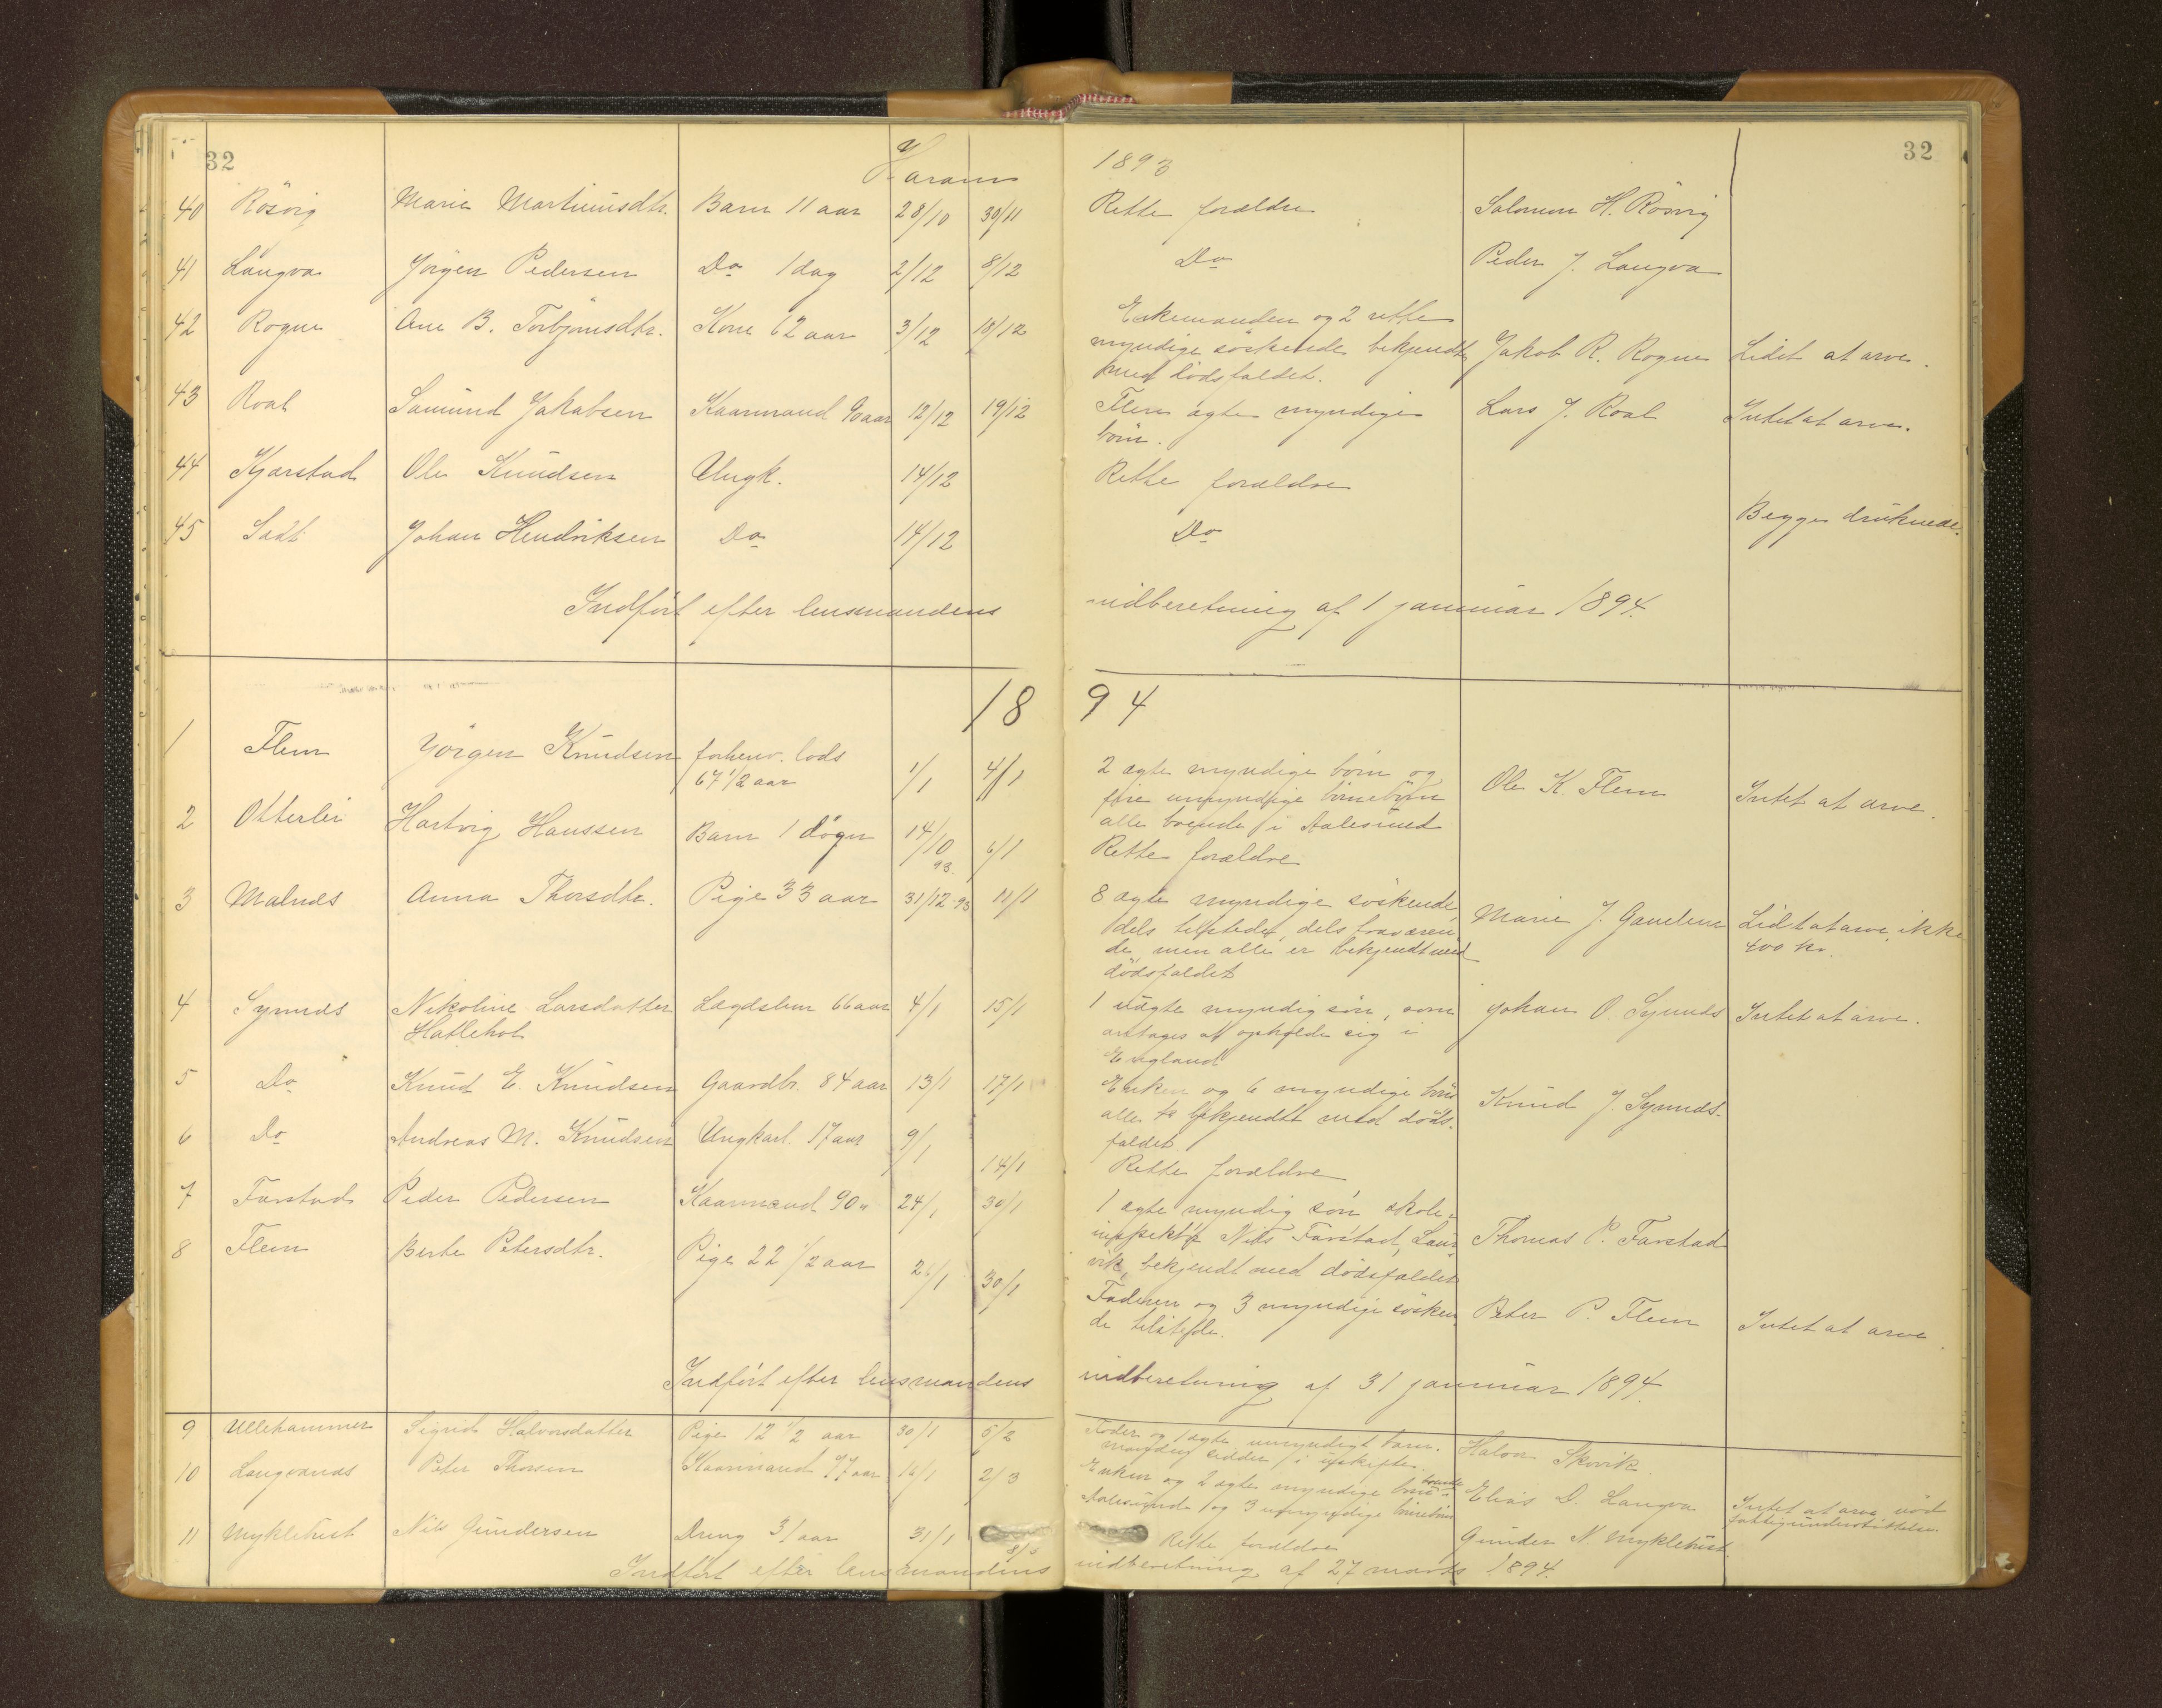 32
Haram
1893
32
40 Rösvig Marie Martinusdtr. Barn 11 aar 28/10 30/11 Rette forældre Salomon H. Rösvig
41 Longva Jörgen Pedersen Do 1 dag 2/12 8/12 Do Peder J. Longva
42 Rogne Ane B. Torbjörnsdtr. Kone 62 aar 3/12 10/12 Enkemanden og 2 rette
myndige söskende bekjendt Jakob R. Rogne Lidet at arve.
med dödsfaldet.
43 Roal Samund Jakobsen Kaarmand 90 aar 12/12 19/12 Flere ægte myndige Lars J. Roal Intet at arve.
börn.
44 Kjærstad Ole Knudsen Ungk. 14/12 Rette forældre
45 Johan Hendriksen Do 14/12 Do Begge druknede.
Indfört efter lensmandens indberetning af 1 januar 1894.
1894
1 Flem Jörgen Knudsen forhenv. lods
67 1/2 aar 1/1 4/1 2 ægte myndige börn og
fire umyndige börnebörn Ole K. Flem Intet at arve.
alle boende i Aalesund
2 Otterlei Hartvig Hanssen Barn 1 dögn 14/10 93. 6/1 Rette forældre
3 Malnes Anna Thorsdtr. Pige 33 aar 31/12-93 11/1 8 ægte myndige söskende,
dels tilstede, dels fraværen Marie J. Gamlem Lidt at arve, ikke
de, men alle er bekjendt med 400 kr.
dödsfaldet
4 Synnes Nikoline Larsdatter Lægdslem 66 aar 4/1 15/1 1 uægte myndig sön, som Johan O. Synnes Intet at arve.
Hatlehol antages at opholde sig i
England
5 Do Knud E. Knudsen Gaardbr. 84 aar 13/1 17/1 Enken og 6 myndige börn Knud J. Synnes.
alle bekjendt med döds-
faldet
6 Do Andreas M. Knudsen Ungkarl. 17 aar 9/1 14/1 Rette forældre
7 Farstad Peder Pedersen Kaarmand 90 " 24/1 30/1 1 ægte myndig sön skole-
inspektör Nils Farstad, Laur- Thomas P. Farstad
vik, bekjendt med dödsfaldet
8 Flem Berte Petersdtr. Pige 22 1/2 aar 26/1 30/1 Faderen og 3 myndige sösken Peter P. Flem Intet at arve.
de tilstede.
Indfört efter lensmandens indberetning af 31 januar 1894.
9 Ullehammer Sigrid Halvorsdatter Pige 12 1/2 aar 30/1 5/2 Fader og 1 ægte umyndigt barn. Halvor Skovik.
sidder i uskiftet.
10 Longvanes Peter Thorsen Kaarmand 77 aar 16/1 2/3 Enken og 2 ægte myndige börn boende Elias D. Longva Intet at arve, nöd
Aalesund og 3 umyndige börnebörn fattigunderstöttelse.
11 Myklebust Nils Gundersen Dreng 3/ aar 31/1 8/3 Rette forældre Gunder N. Myklebust
Indfört efter lensmandens indberetning af 27 marts 1894.